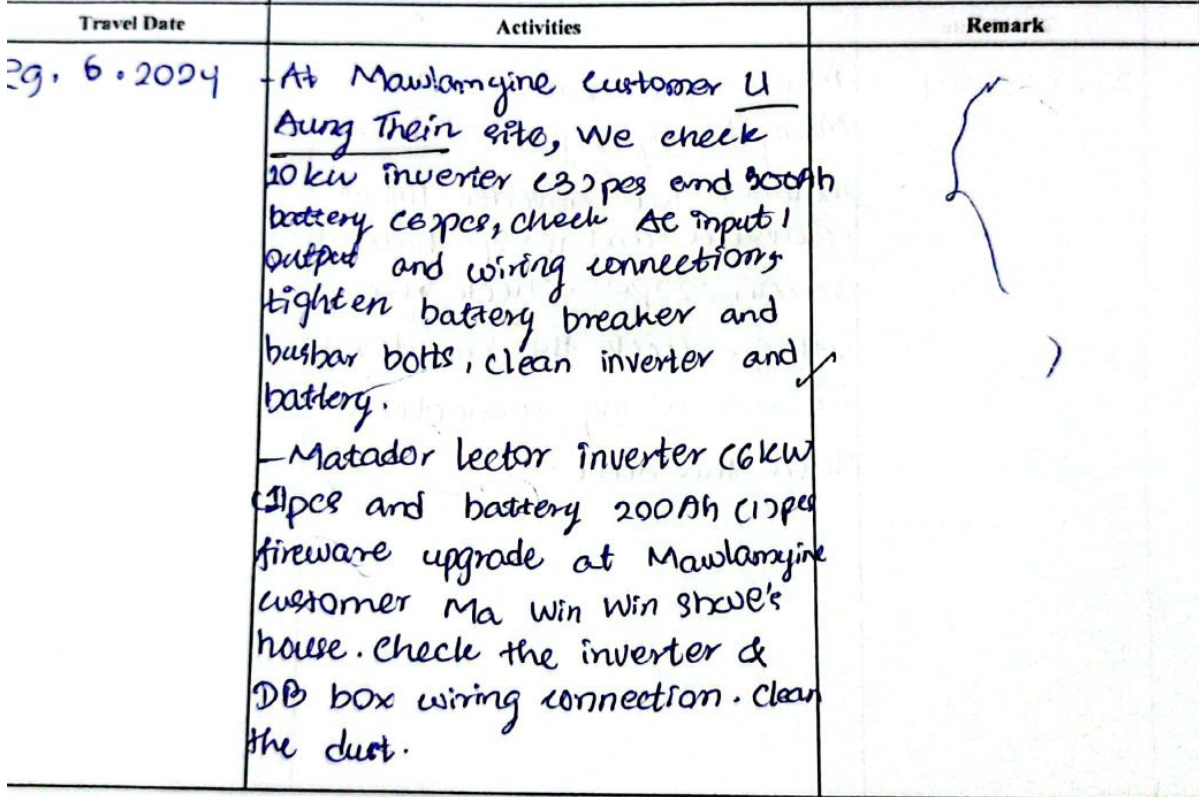 Travel Date Activities Remark
29. 6. 2024 - At Mawlamyine customer U
Aung Thein site, We check
10 kw inverter (3) pcs and 300Ah
battery (6) pcs, check AC input /
output and wiring connections,
tighten battery breaker and
busbar bolts, clean inverter and
battery.
- Matador lector inverter (6 kw)
(1) pcs and battery 200 Ah (1) pcs
fireware upgrade at Mawlamyine
customer Ma Win Win Shwe's
house. Check the inverter &
DB box wiring connection. Clean
the dust.